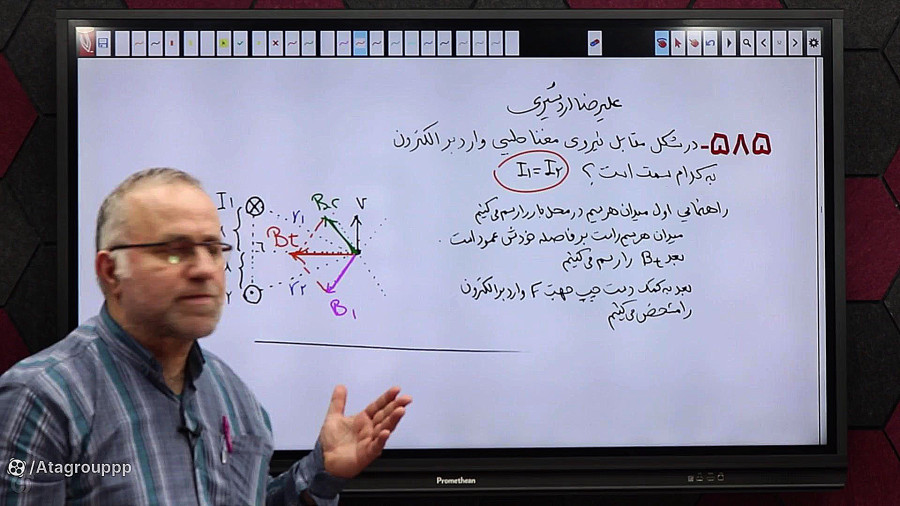 علیرضا اردشیری
۵۸۵- در شکل مقابل نیروی مغناطیسی وارد بر الکترون
به کدام سمت است؟ I₁ = I₂
راهنمایی اول میدان هر سیم در محل بار را رسم می‌کنیم
میدان هر سیم راست بر فاصله خودش عمود است
بعد Bt را رسم می‌کنیم
بعد به کمک دست چپ جهت F وارد بر الکترون
را مشخص می‌کنیم
I₁
r₁
B₂
V
Bt
r₂
B₁
/Atagrouppp
Promethean